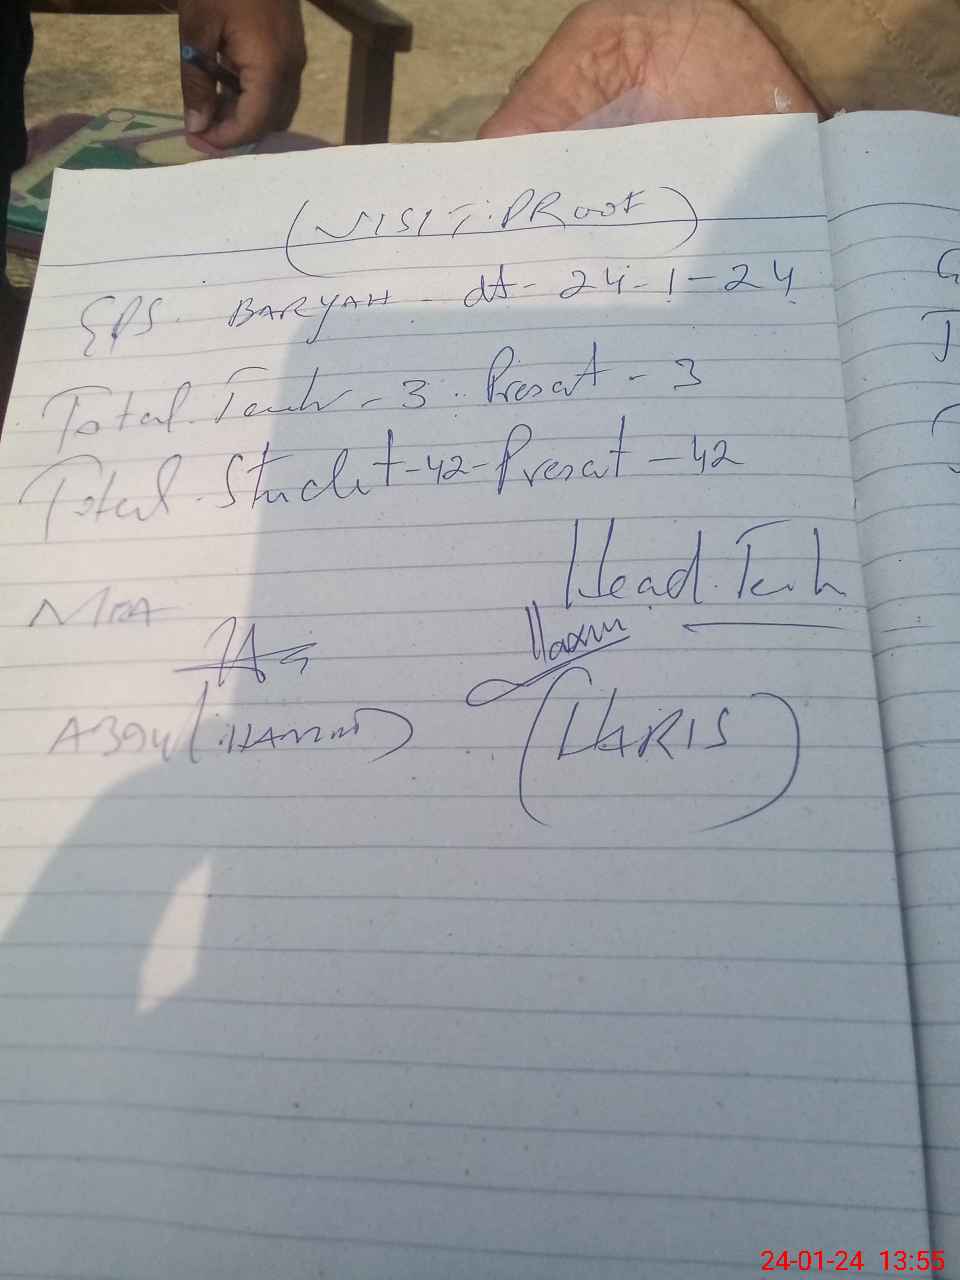 (VISIT: PRooF)
GPS. BARYAH - dt - 24-1-24
Total. Teach - 3. Presat - 3
Total. Studet - 42 - Presat - 42
Head. Teach
MEA
(HARIS)
24-01-24 13:55